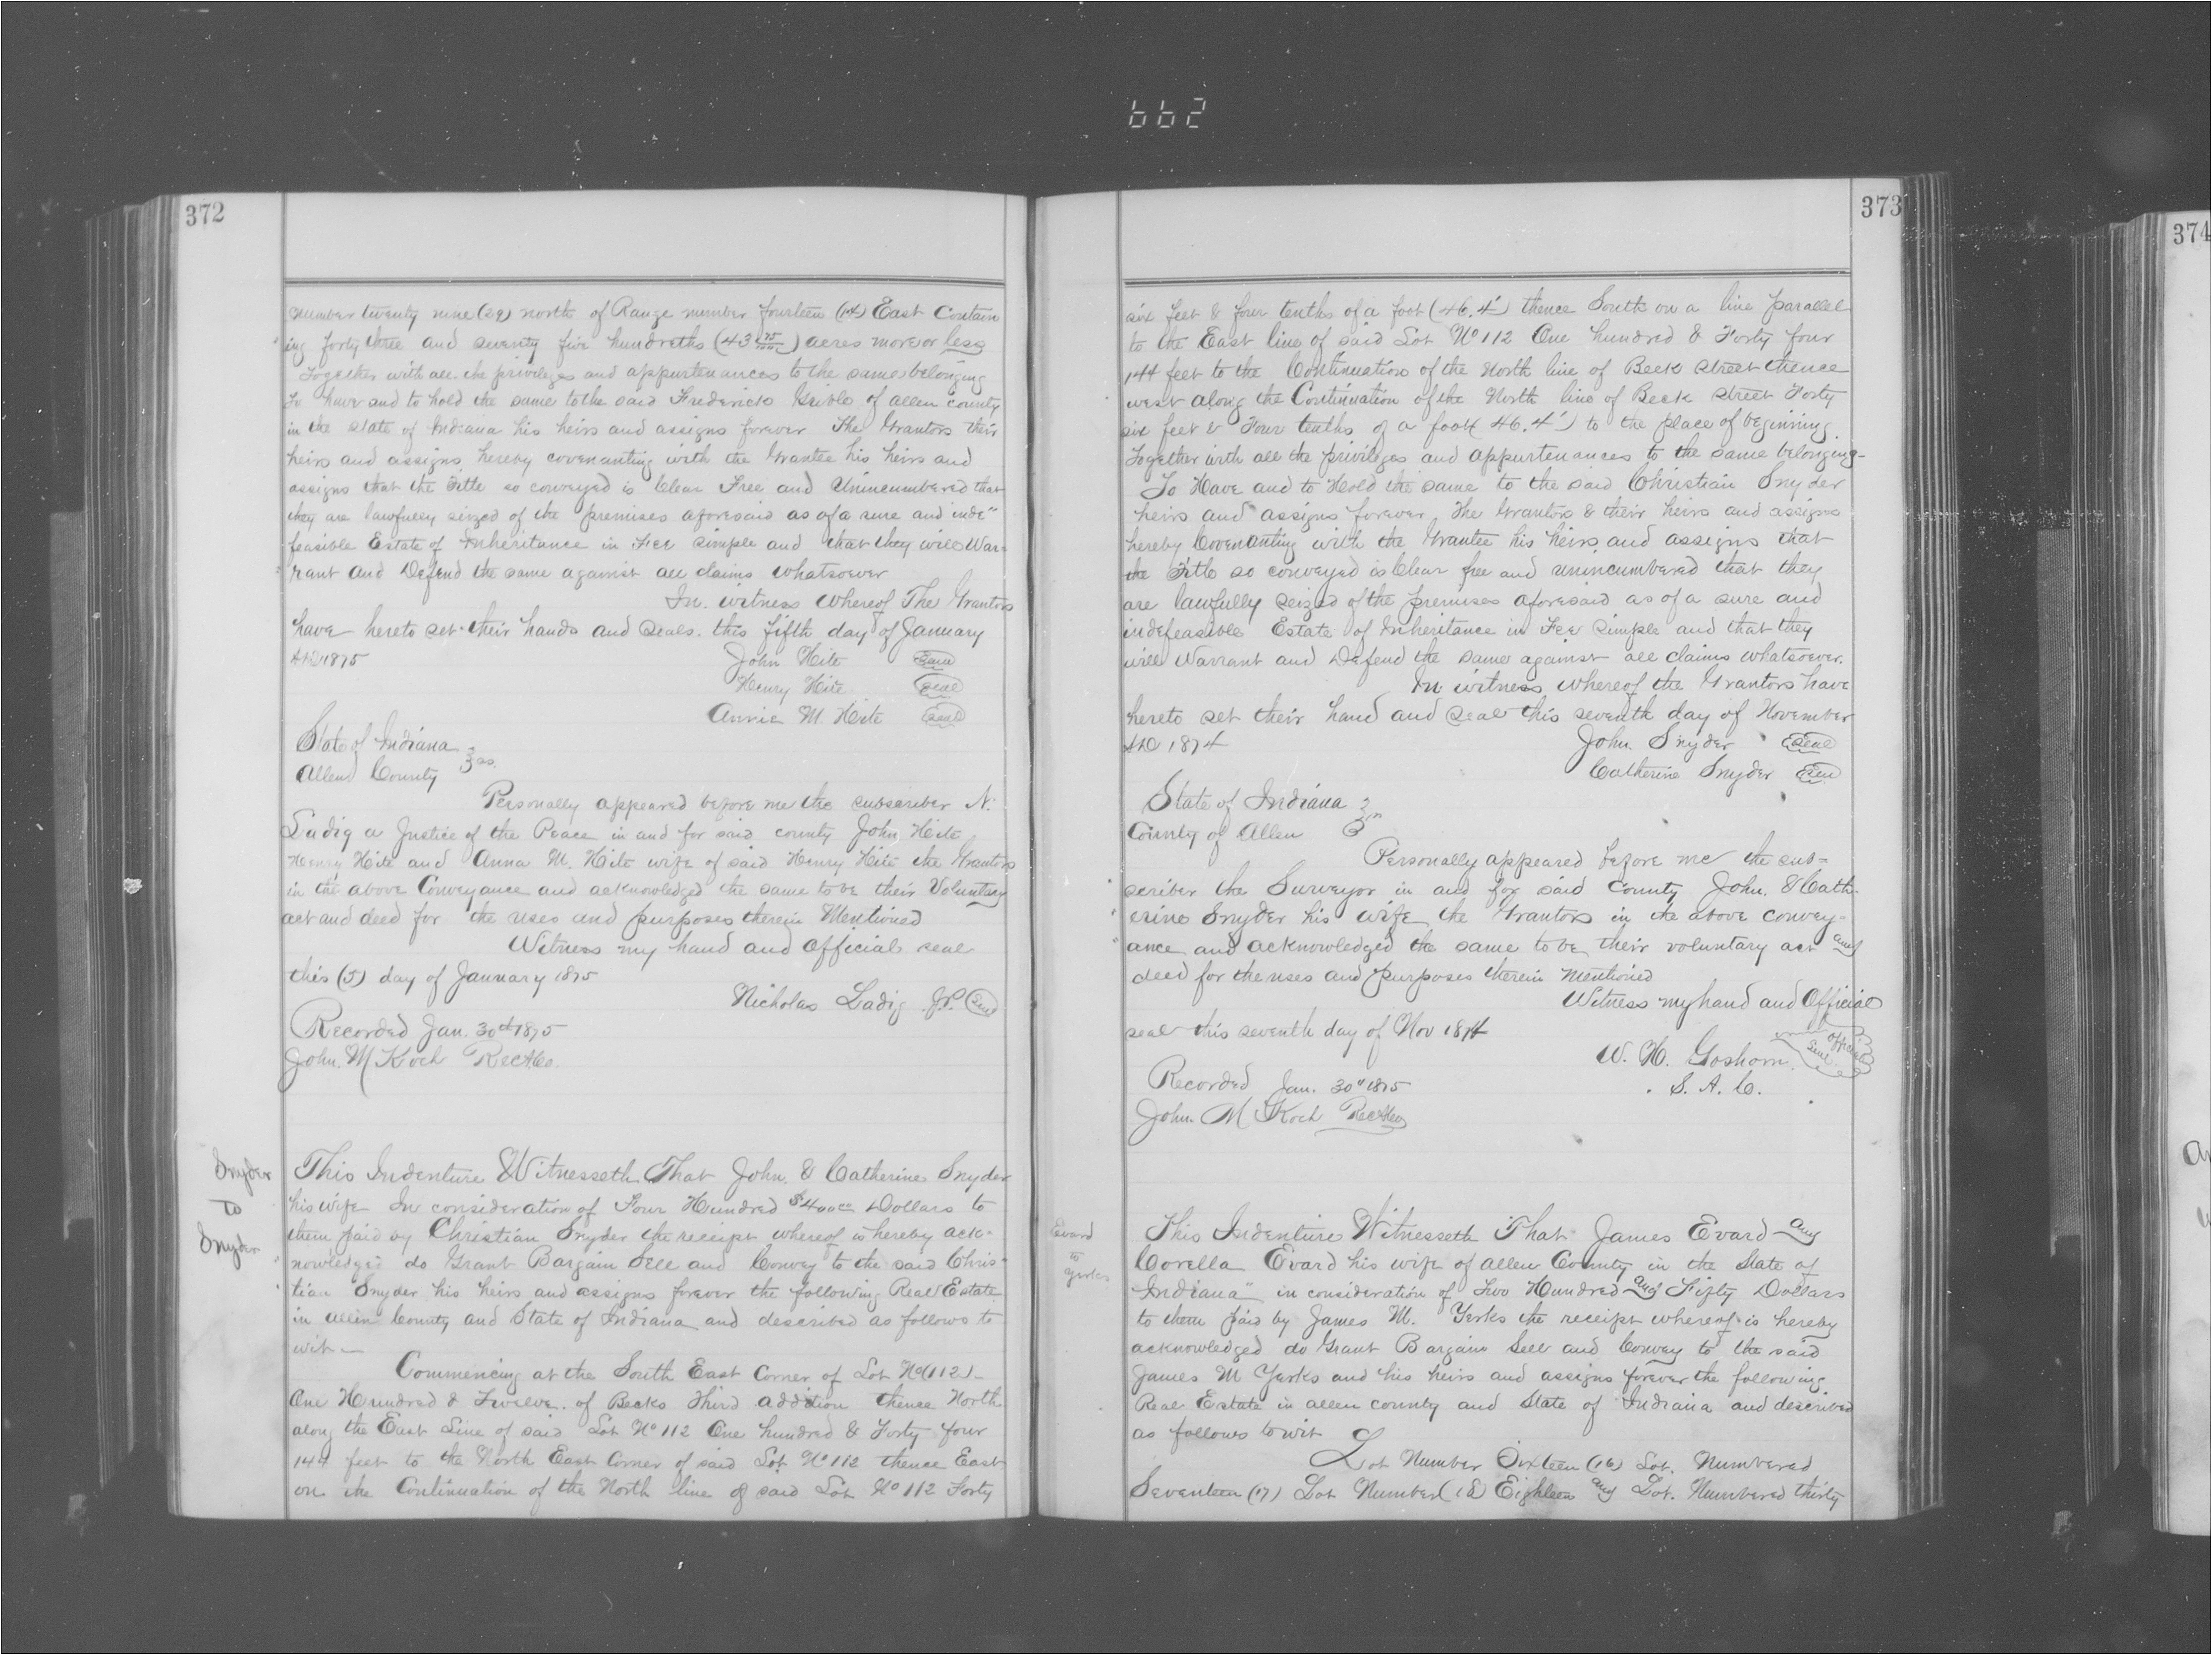 662
372
number twenty nine (29) north of Range number fourteen (14) East Contain
ing forty three and seventy five hundreths (43 75/100) acres more or less
Together with all the privileges and appurtenances to the same belonging
To have and to hold the same to the said Frederick of allen county
in the state of Indiana his heirs and assigns forever The Grantors their
heirs and assigns hereby covenanting with the Grantee his heirs and
assigns that the Title so conveyed is Clear Free and Unincumbered that
they are lawfully seized of the premises aforesaid as of a sure and inde"
feasible Estate of Inheritance in Fee Simple and that they will War=
rant and Defend the same against all claims whatsoever
In witness whereof The Grantors
have hereto set their hands and seals this fifth day of January
AD 1875 John Hite Seal
Henry Hite Seal
Annie M. Hite Seal
State of Indiana
Allen County ss.
Personally appeared before me the subscriber N.
Ladig a Justice of the Peace in and for said county John Hite
Henry Hite and Anna M. Hite wife of said Henry Hite the Grantors
in the above Conveyance and acknowledged the same to be their Voluntary
act and deed for the uses and purposes therein Mentioned
Witness my hand and official seal
this (5) day of January 1875
Nicholas Ladig J.P. Seal
Recorded Jan. 30th 1875
John. M Koch Rec ACo.
Snyder
To
Snyder
This Indenture Witnesseth That John. & Catherine Snyder
his wife In consideration of Four Hundred $400 00 Dollars to
them paid by Christian Snyder the receipt whereof is hereby ack=
nowledged do Grant Bargain Sell and Convey to the said Chris=
tian Snyder his heirs and assigns forever the following Real Estate
in allen County and State of Indiana and described as follows to
wit —
Commencing at the South East Corner of Lot No (112)
One Hundred & Twelve of Becks Third addition thence North
along the East Line of said Lot No 112 One hundred & Forty four
144 feet to the North East Corner of said Lot No 112 thence East
on the Continuation of the North line of said Lot No 112 Forty
373
six feet & four tenths of a foot (46.4') thence South on a line parallel
to the East line of said Lot No 112 One hundred & Forty four
144 feet to the Continuation of the North line of Beck Street thence
west along the Continuation of the North line of Beck street Forty
six feet & Four tenths of a foot (46.4') to the place of beginning.
Together with all the privileges and appurtenances to the same belonging-
To Have and to Hold the same to the said Christian Snyder
heirs and assigns forever. The Grantors & their heirs and assigns
hereby Covenanting with the Grantee his heirs and assigns that
the Title so conveyed is Clear free and unincumbered that they
are lawfully seized of the premises aforesaid as of a sure and
indefeasible Estate of Inheritance in Fee Simple and that they
will Warrant and Defend the same against all claims whatsoever.
In witness whereof the Grantors have
hereto set their hand and seal this seventh day of November
AD 1874 John. Snyder Seal
Catherine Snyder Seal
State of Indiana
County of Allen
Personally appeared before me the sub=
scriber the Surveyor in and for said county John. & Cath-
erine Snyder his wife the Grantors in the above convey-
ance and acknowledged the same to be their voluntary act and
deed for the uses and purposes therein Mentioned
Witness my hand and Official
seal this seventh day of Nov 1874
W. H. Goshorn Official Seal
S. A. C.
Recorded Jan. 30th 1875
John. M Koch Rec ACo
Evard
to
Yerks
This Indenture Witnesseth That James Evard and
Corella Evard his wife of allen County in the State of
Indiana" in consideration of Two Hundred and Fifty Dollars
to them paid by James M. Yerks the receipt whereof is hereby
acknowledged do Grant Bargain Sell and Convey to the said
James M Yerks and his heirs and assigns forever the following
Real Estate in allen county and State of Indiana and described
as follows to wit
Lot Number Sixteen (16) Lot. Numbered
Seventeen (17) Lot Number (18) Eighteen and Lot. Numbered thirty
374